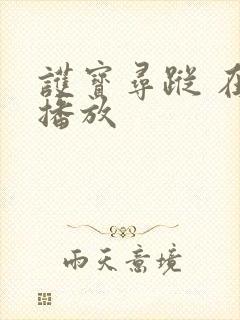 護寶尋蹤 在
播放
雨天意境